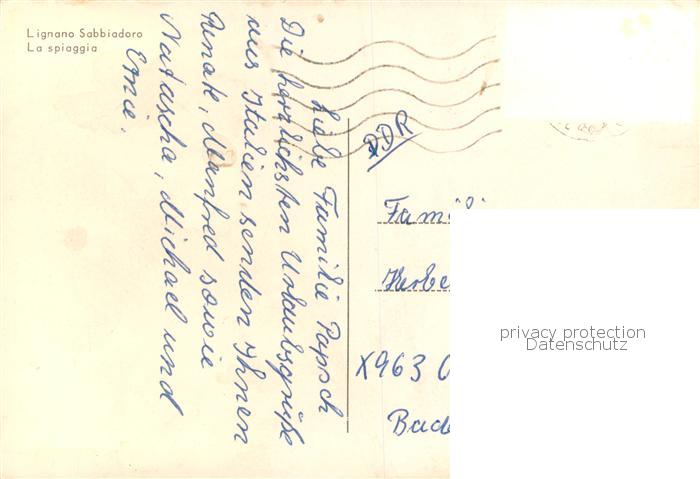 Lignano Sabbiadoro
La spiaggia
Liebe Familie Papsch
Die herzlichsten Urlaubsgrüße
aus Italien senden Ihnen
Renate, Manfred sowie
Natascha, Michael und
Ernie.
DDR
Famili
Herbe
X963
Bade
privacy protection
Datenschutz